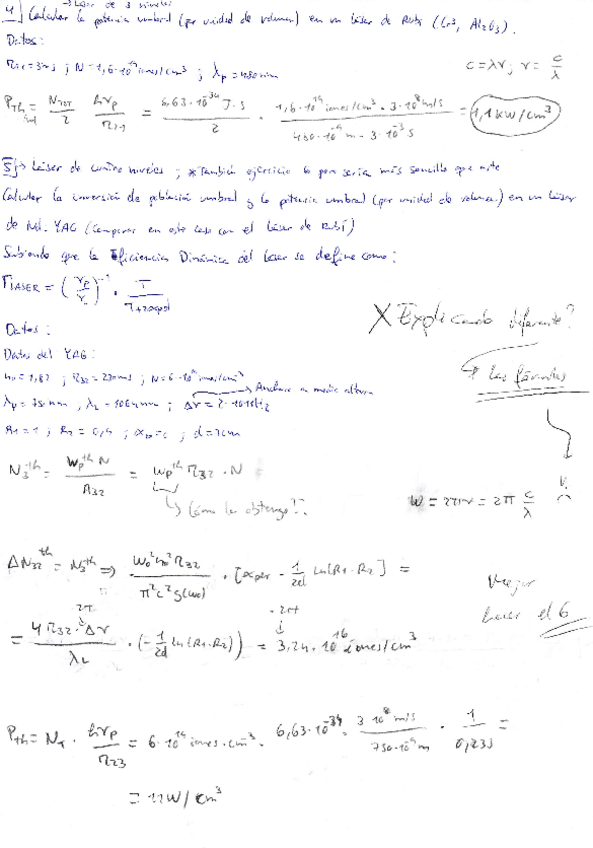 → Láser de 3 niveles
4] Calcular la potencia umbral (por unidad de volumen) en un láser de Rubí (Cr³, Al₂O₃).
Datos:
τ₂₁ = 3ms ; N = 1,6·10¹⁹ iones/cm³ ; λp = 480nm
c = λν ; ν = c/λ
Pth = NTOT/2 hνp/τ₂₁ = 6,63·10⁻³⁴ J·s / 2 · 1,6·10¹⁹ iones/cm³ · 3·10⁸ m/s / 480·10⁻⁹ m · 3·10⁻³ s = 1,1 kW/cm³
5] → Láser de cuatro niveles ; * También ejercicio 6 pero sería más sencillo que este
Calcular la inversión de población umbral y la potencia umbral (por unidad de volumen) en un láser
de Nd. YAG (Comparar en este caso con el láser de Rubí)
Sabiendo que la Eficiencia Dinámica del láser se define como:
= (νp/ν)⁻¹ · T /
X Explicando diferente?
↳ Las fórmulas
Datos:
Datos del YAG:
n₀ = 1,82 ; τ₃₂ = 230ms ; iones/cm³
→ Anchura a media altura
λp = 750nm , λL = 1064nm ; Δν =
R₁ = 1 ; R₂ = 0,4 ; ; d = 7cm
N₃ᵗʰ = Wpᵗʰ N / A₃₂ = Wpᵗʰ τ₃₂ · N =
↳ Cómo la obtengo?
W = 2πν = 2π c/λ
ΔN₃₂ᵗʰ = N₃ᵗʰ ⇒ W₀² n₀² τ₃₂ / π²c²g(ω₀) · [αper - 1/2d ln(R₁·R₂)] =
Mejor
hacer el 6
2π
· 2π
= 4 τ₃₂ · Δν / λL · (-1/2d ln(R₁·R₂)) = 3,24·10¹⁶ iones/cm³
Pth = NT · hνp/τ₂₃ = 6·10¹⁹ iones·cm³ · 6,63·10⁻³⁴ · 3·10⁸ m/s / 750·10⁻⁹ m · 1 / 0,23s =
W/cm³